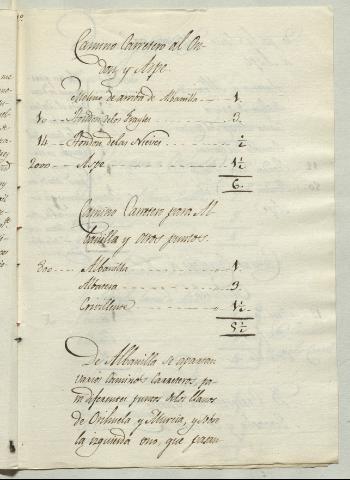 Camino Carretero al On-
don, y Aspe.
Molino de arriba de Albanilla --- 1.
10 --- Hondon de los Frayles --- 3.
14 --- Hondon de las Nieves --- ½
2000 --- Aspe --- 1½
6.
Camino Carretero para Al-
banilla y otros puntos.
300 --- Albanilla --- 1.
Albatera --- 3
Crevillente --- 1½
5½
De Albanilla se apartan
varios caminos carreteros pa-
ra diferentes puntos de los llanos
de Orihuela, y Murcia, y sobre
la izquierda uno, que pasan-